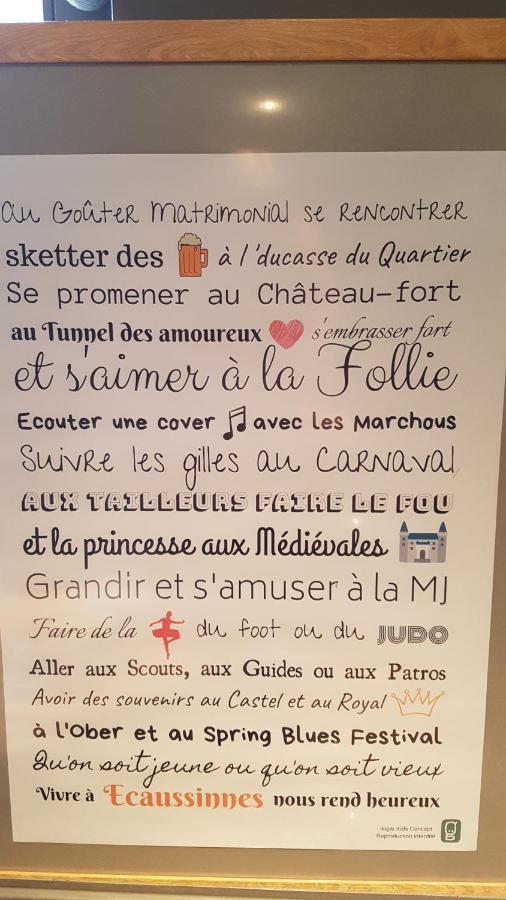 au Goûter Matrimonial se Rencontrer
sketter des à l'ducasse du Quartier
Se promener au Château-fort
au Tunnel des amoureux s'embrasser fort
et s'aimer à la Follie
Ecouter une cover avec les Marchous
Suivre les gilles au Carnaval
AUX TAILLEURS FAIRE LE FOU
et la princesse aux Médiévales
Grandir et s'amuser à la MJ
Faire de la du foot ou du JUDO
Aller aux Scouts, aux Guides ou aux Patros
Avoir des souvenirs au Castel et au Royal
à l'Ober et au Spring Blues Festival
Qu'on soit jeune ou qu'on soit vieux
Vivre à Ecaussinnes nous rend heureux
Ikigai Kids Concept
Reproduction interdite